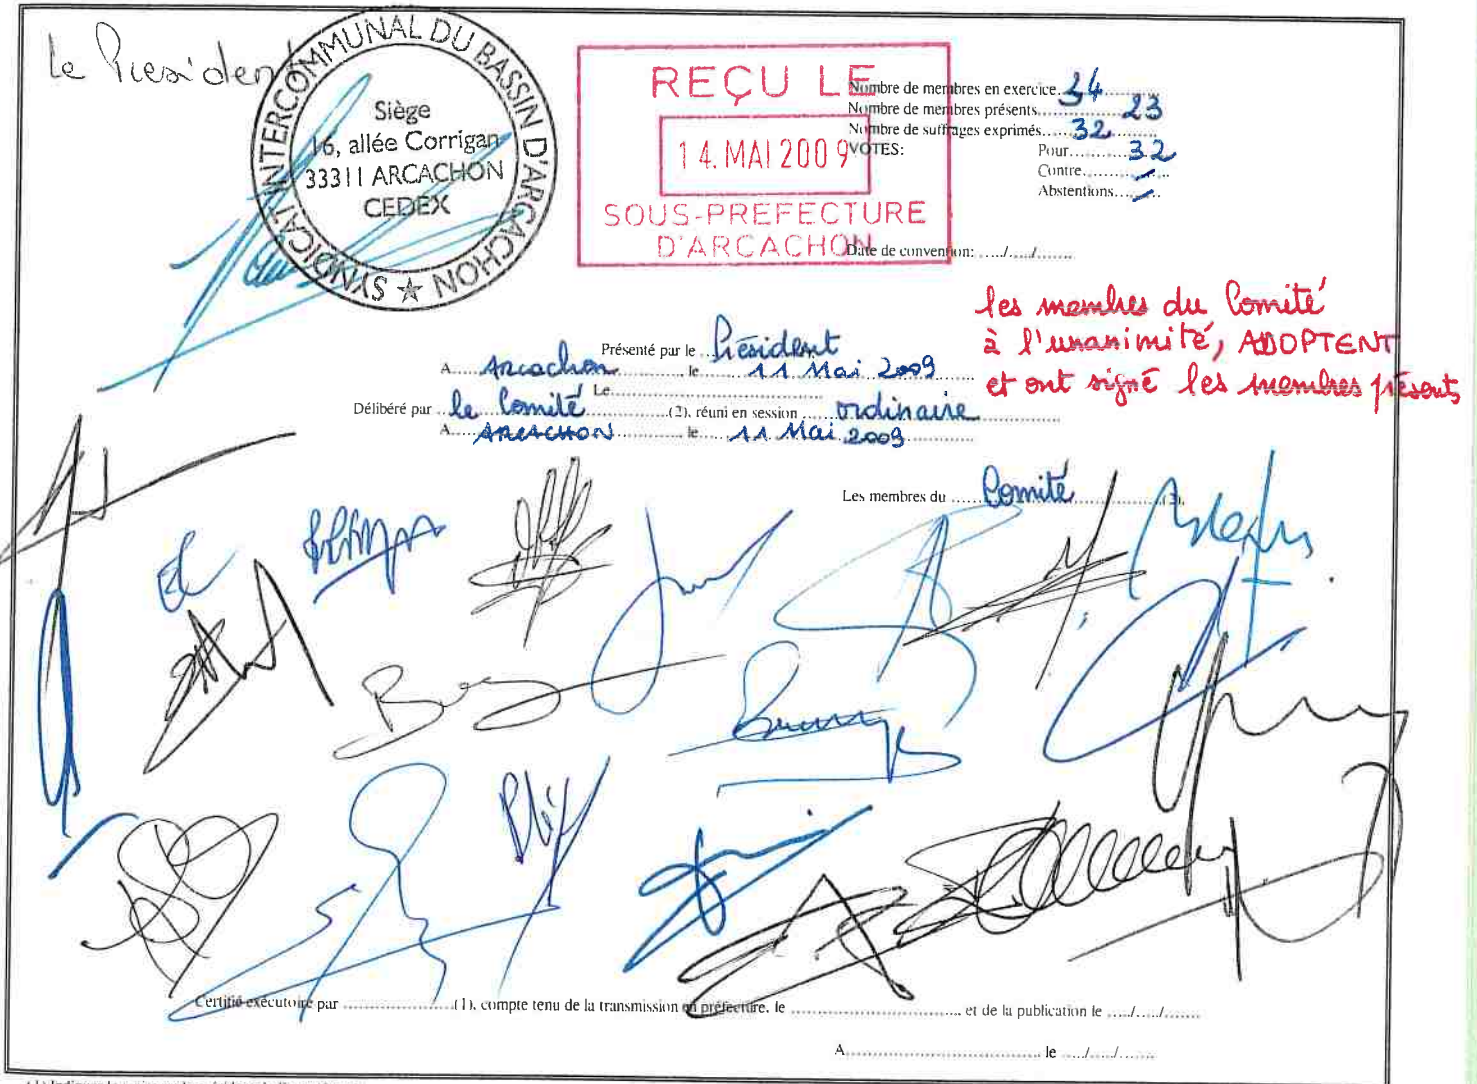 Le President
SYNDICAT INTERCOMMUNAL DU BASSIN D'ARCACHON
Siège
16, allée Corrigan
33311 ARCACHON
CEDEX
REÇU LE
14. MAI 2009
SOUS-PREFECTURE
D'ARCACHON
Nombre de membres en exercice. 34
Nombre de membres présents. 23
Nombre de suffrages exprimés. 32
VOTES:
Pour. 32
Contre.
Abstentions.
Date de convention: ...../...../........
les membres du Comité
à l'unanimité, ADOPTENT
et ont signé les membres présents
Présenté par le Président
A Arcachon le 11 Mai 2009
Le
Délibéré par le Comité (2), réuni en session ordinaire
A ARCACHON le 11 Mai 2009
Les membres du Comité (2),
Certifié exécutoire par (1), compte tenu de la transmission en préfecture, le et de la publication le ...../...../........
A le ...../...../........